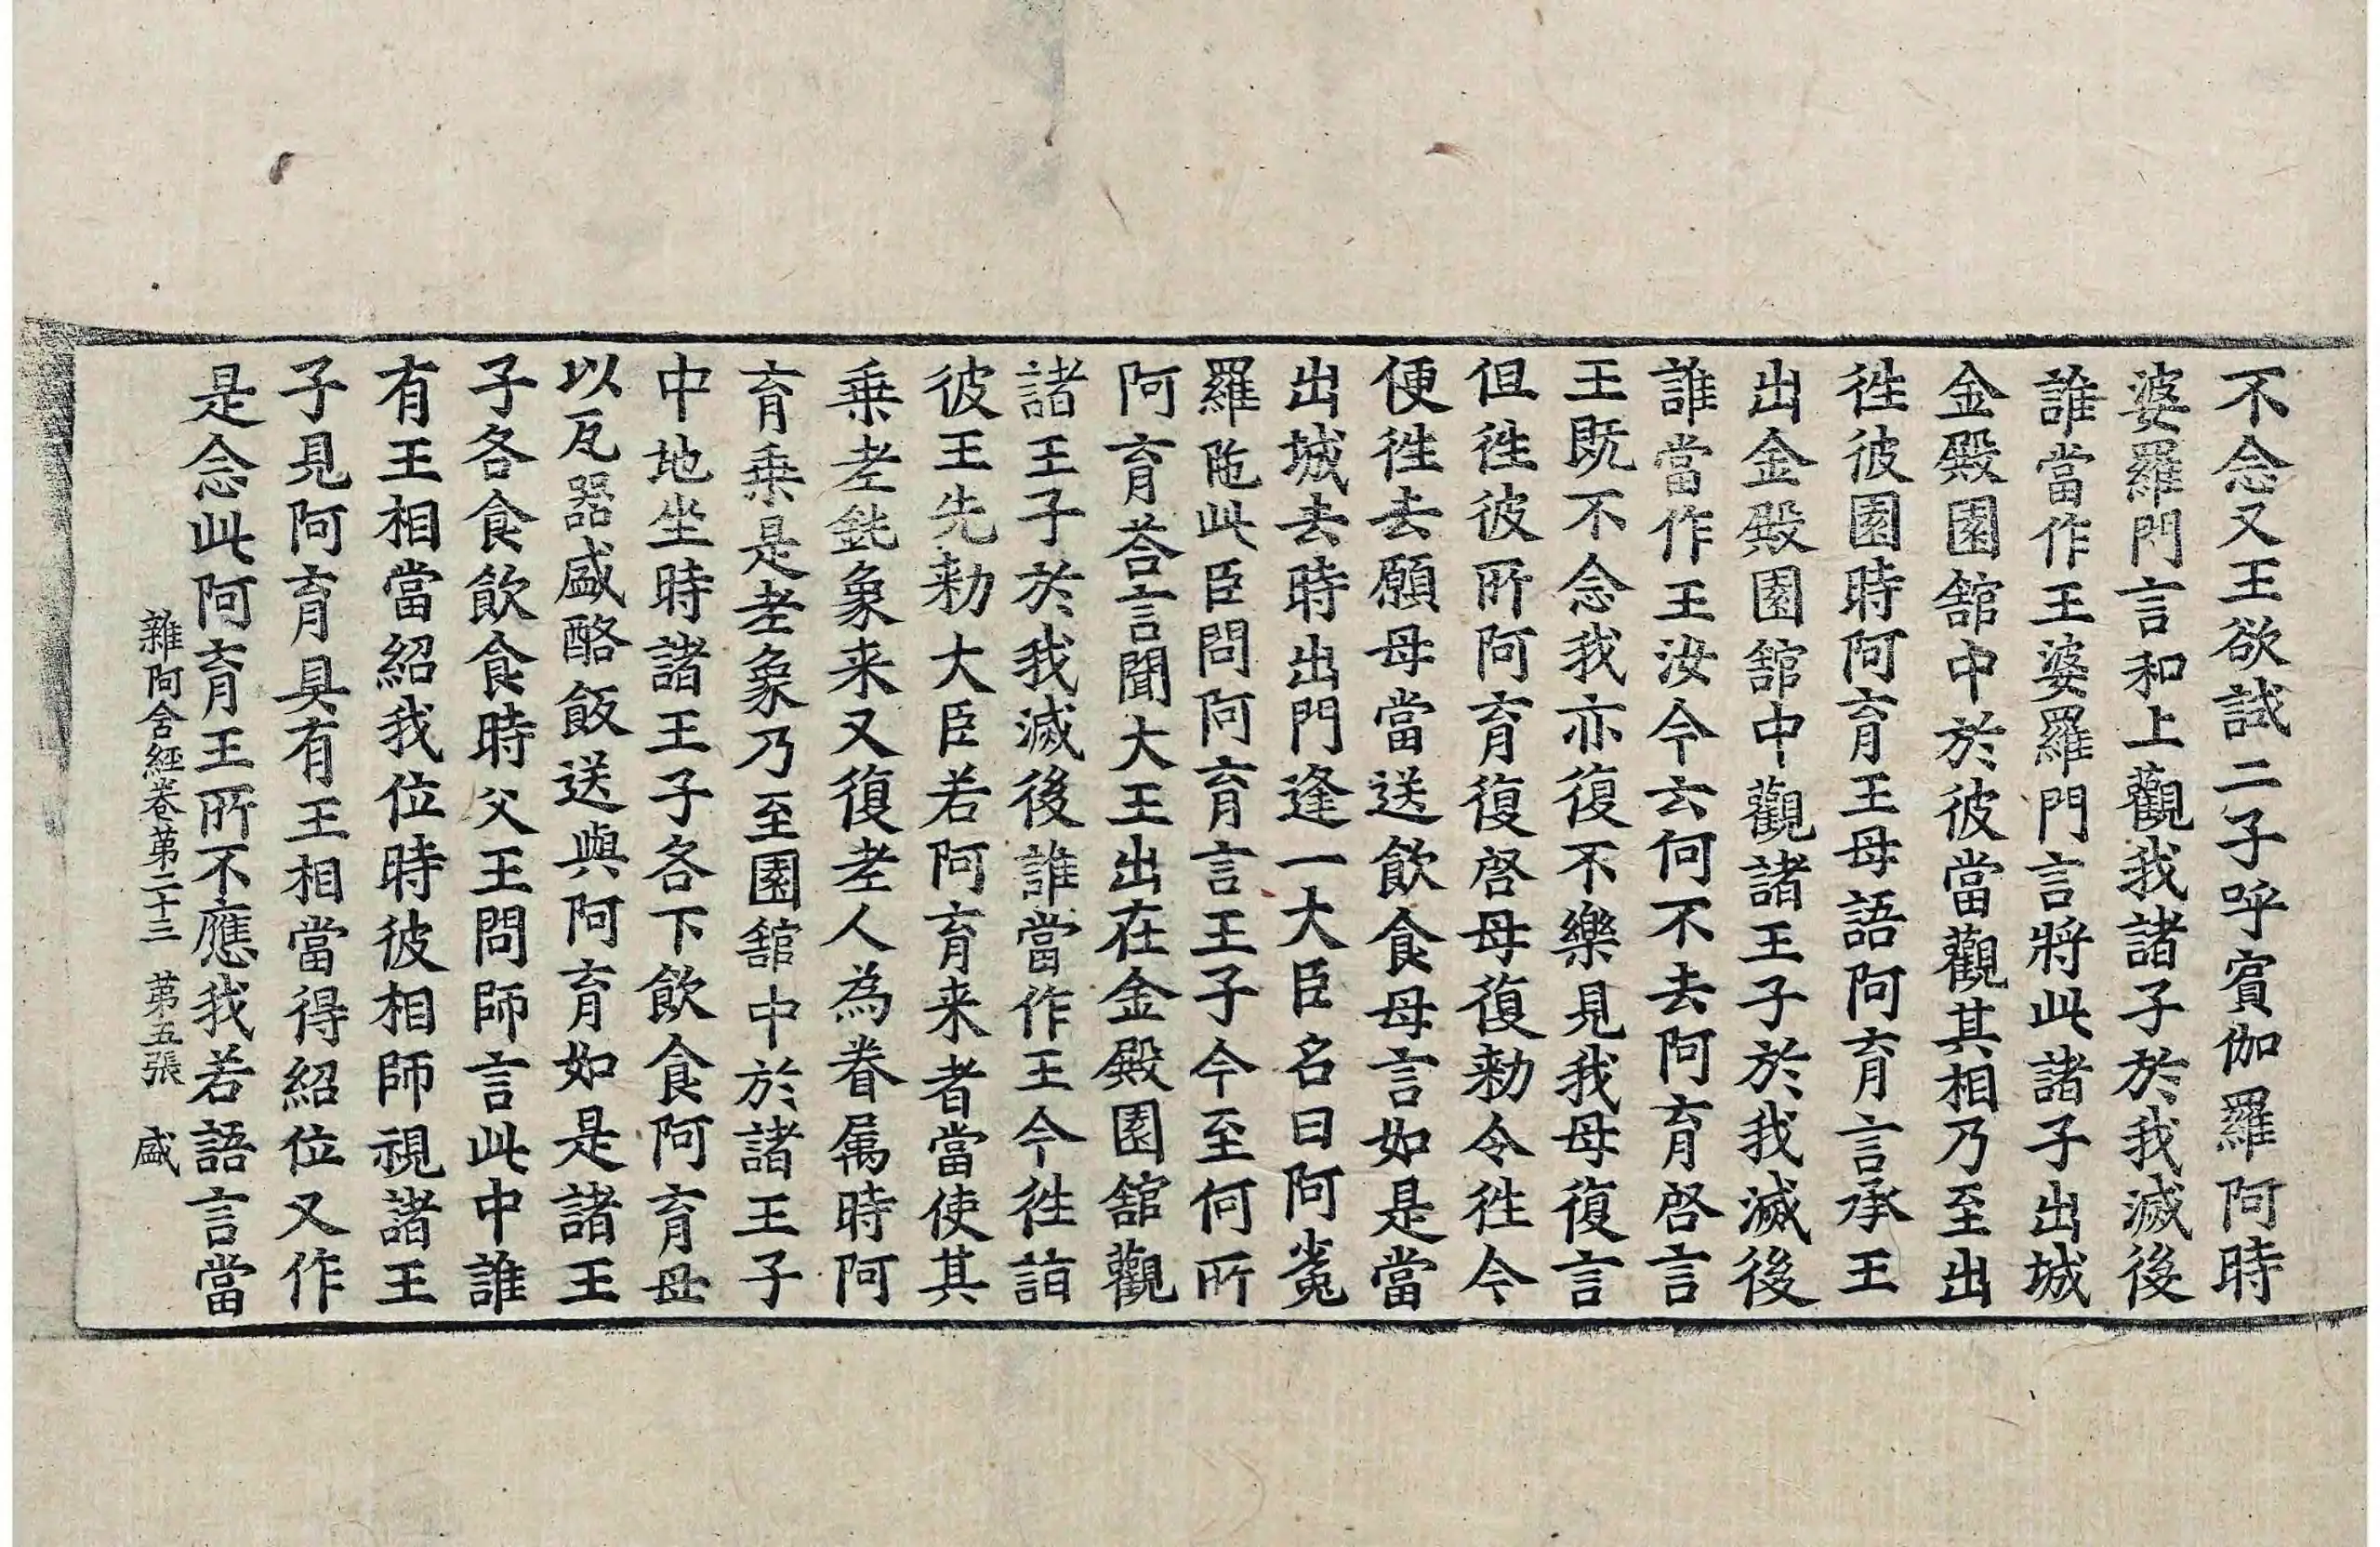 不念又王欲試二子呼賔伽羅阿時
婆羅門言和上觀我諸子於我滅後
誰當作王婆羅門言將此諸子出城
金殿園舘中於彼當觀其相乃至出
徃彼園時阿育王母語阿育言承王
出金殿園舘中觀諸王子於我滅後
誰當作王汝今云何不去阿育啓言
王既不念我亦復不樂見我母復言
但徃彼所阿育復啓母復勑令徃今
便徃去願母當送飲食母言如是當
出城去時出門逢一大臣名曰阿㝹
羅陁此臣問阿育言王子今至何所
阿育荅言聞大王出在金殿園舘觀
諸王子於我滅後誰當作王今徃詣
彼王先勑大臣若阿育来者當使其
乗老鈍象来又復老人為眷属時阿
育乗是老象乃至園舘中於諸王子
中地坐時諸王子各下飲食阿育母
以瓦器盛酪飯送與阿育如是諸王
子各食飲食時父王問師言此中誰
有王相當紹我位時彼相師視諸王
子見阿育具有王相當得紹位又作
是念此阿育王所不應我若語言當
雜阿含經卷第二十三 第五張 盛